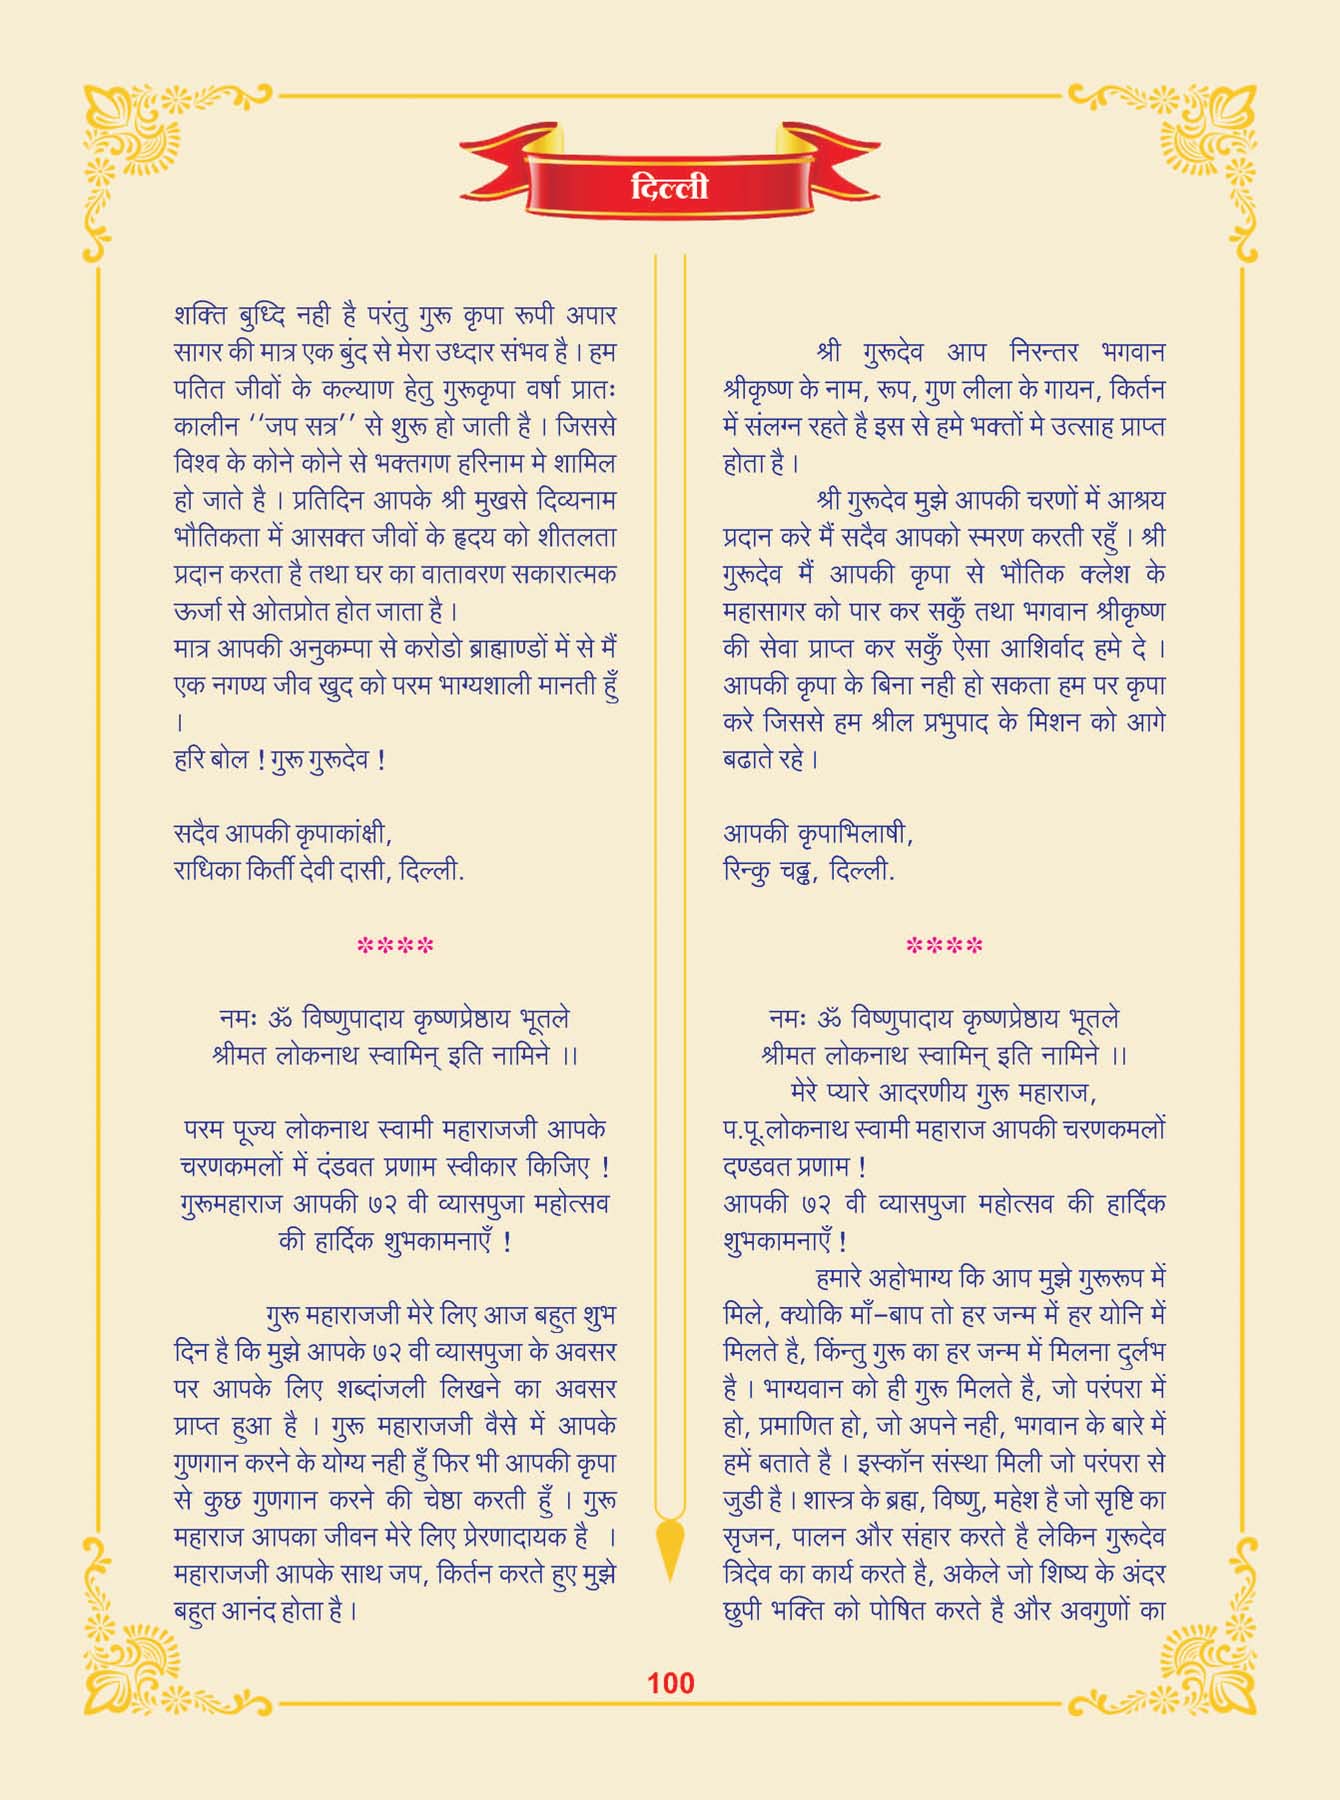 दिल्ली
शक्ति बुध्दि नही है परंतु गुरू कृपा रूपी अपार
सागर की मात्र एक बुंद से मेरा उध्दार संभव है । हम
पतित जीवों के कल्याण हेतु गुरूकृपा वर्षा प्रातः
कालीन ‘‘जप सत्र’’ से शुरू हो जाती है । जिससे
विश्व के कोने कोने से भक्तगण हरिनाम मे शामिल
हो जाते है । प्रतिदिन आपके श्री मुखसे दिव्यनाम
भौतिकता में आसक्त जीवों के हृदय को शीतलता
प्रदान करता है तथा घर का वातावरण सकारात्मक
ऊर्जा से ओतप्रोत होत जाता है ।
मात्र आपकी अनुकम्पा से करोडो ब्राह्माण्डों में से मैं
एक नगण्य जीव खुद को परम भाग्यशाली मानती हुँ
।
हरि बोल ! गुरू गुरूदेव !
सदैव आपकी कृपाकांक्षी,
राधिका किर्ती देवी दासी, दिल्ली.
****
नमः ॐ विष्णुपादाय कृष्णप्रेष्ठाय भूतले
श्रीमत लोकनाथ स्वामिन् इति नामिने ।।
परम पूज्य लोकनाथ स्वामी महाराजजी आपके
चरणकमलों में दंडवत प्रणाम स्वीकार किजिए !
गुरूमहाराज आपकी ७२ वी व्यासपुजा महोत्सव
की हार्दिक शुभकामनाएँ !
गुरू महाराजजी मेरे लिए आज बहुत शुभ
दिन है कि मुझे आपके ७२ वी व्यासपुजा के अवसर
पर आपके लिए शब्दांजली लिखने का अवसर
प्राप्त हुआ है । गुरू महाराजजी वैसे में आपके
गुणगान करने के योग्य नही हुँ फिर भी आपकी कृपा
से कुछ गुणगान करने की चेष्ठा करती हुँ । गुरू
महाराज आपका जीवन मेरे लिए प्रेरणादायक है ।
महाराजजी आपके साथ जप, किर्तन करते हुए मुझे
बहुत आनंद होता है ।
श्री गुरूदेव आप निरन्तर भगवान
श्रीकृष्ण के नाम, रूप, गुण लीला के गायन, किर्तन
में संलग्न रहते है इस से हमे भक्तों मे उत्साह प्राप्त
होता है ।
श्री गुरूदेव मुझे आपकी चरणों में आश्रय
प्रदान करे मैं सदैव आपको स्मरण करती रहुँ । श्री
गुरूदेव मैं आपकी कृपा से भौतिक क्लेश के
महासागर को पार कर सकुँ तथा भगवान श्रीकृष्ण
की सेवा प्राप्त कर सकुँ ऐसा आशिर्वाद हमे दे ।
आपकी कृपा के बिना नही हो सकता हम पर कृपा
करे जिससे हम श्रील प्रभुपाद के मिशन को आगे
बढाते रहे ।
आपकी कृपाभिलाषी,
रिन्कु चढ्ढ, दिल्ली.
****
नमः ॐ विष्णुपादाय कृष्णप्रेष्ठाय भूतले
श्रीमत लोकनाथ स्वामिन् इति नामिने ।।
मेरे प्यारे आदरणीय गुरू महाराज,
प.पू.लोकनाथ स्वामी महाराज आपकी चरणकमलों
दण्डवत प्रणाम !
आपकी ७२ वी व्यासपुजा महोत्सव की हार्दिक
शुभकामनाएँ !
हमारे अहोभाग्य कि आप मुझे गुरूरूप में
मिले, क्योकि माँ–बाप तो हर जन्म में हर योनि में
मिलते है, किंन्तु गुरू का हर जन्म में मिलना दुर्लभ
है । भाग्यवान को ही गुरू मिलते है, जो परंपरा में
हो, प्रमाणित हो, जो अपने नही, भगवान के बारे में
हमें बताते है । इस्कॉन संस्था मिली जो परंपरा से
जुडी है । शास्त्र के ब्रह्म, विष्णु, महेश है जो सृष्टि का
सृजन, पालन और संहार करते है लेकिन गुरूदेव
त्रिदेव का कार्य करते है, अकेले जो शिष्य के अंदर
छुपी भक्ति को पोषित करते है और अवगुणों का
100